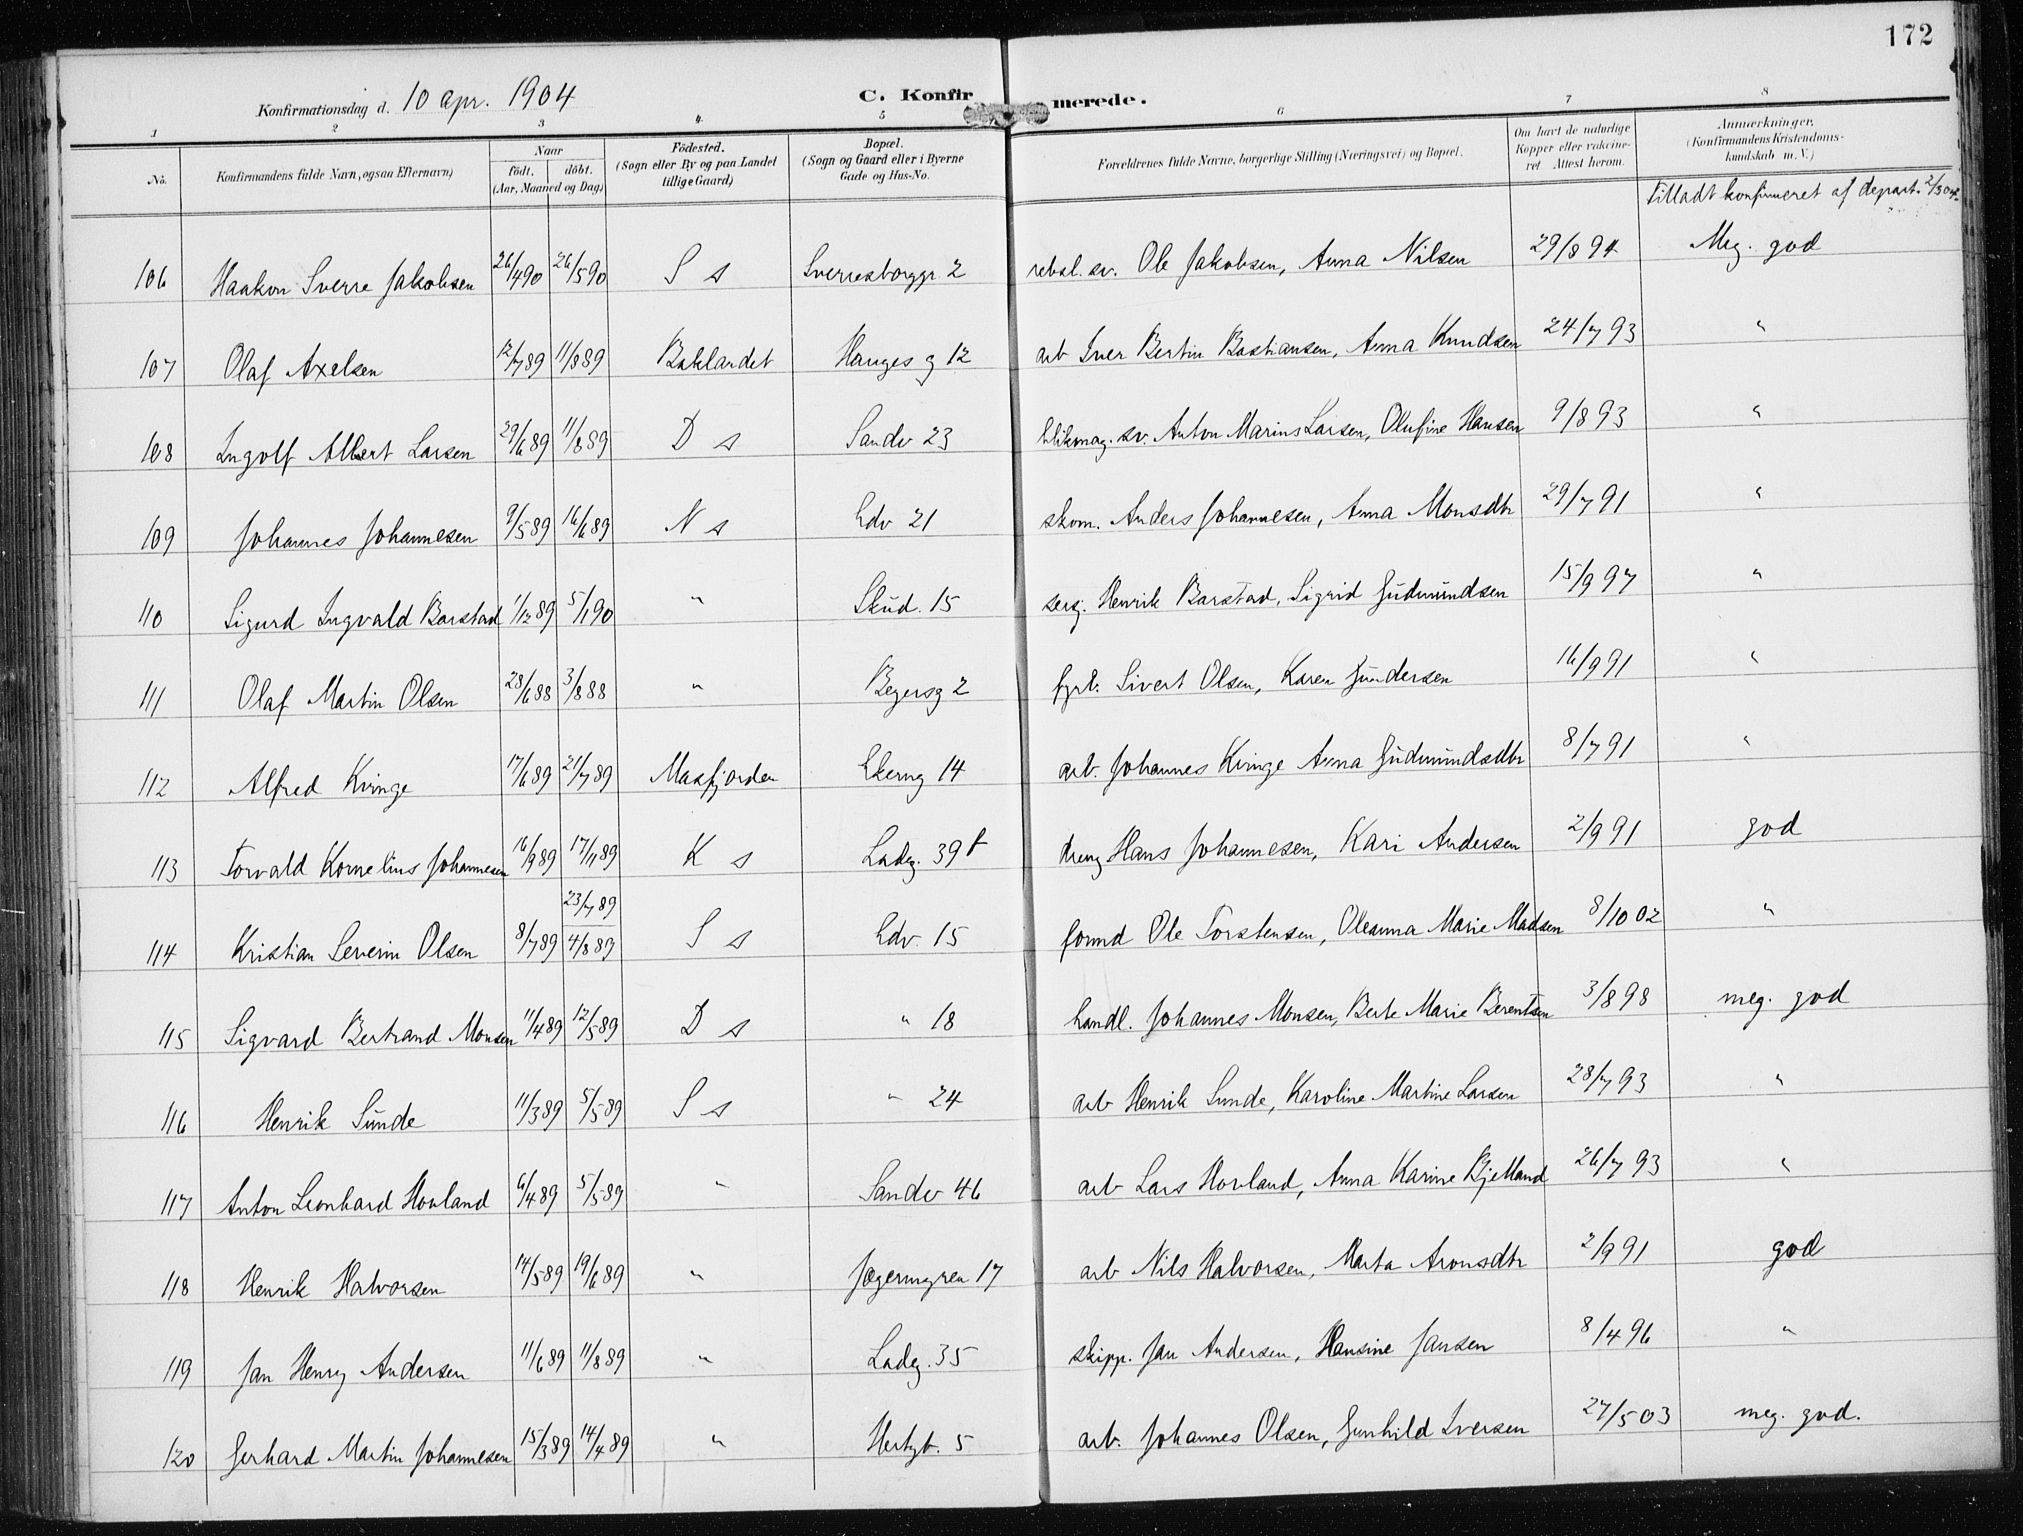 172
Konfirmationsdag d. 10 apr. 1904 C. Konfirmerede.
1 2 3 4 5 6 7 8
No. Konfirmandens fulde Navn, ogsaa Efternavn) Naar født. døbt. (Aar, Maaned og Dag) Födested. (Sogn eller By og paa Landet tillige Gaard) Bopæl. (Sogn og Gaard eller i Byerne Gade og Hus-No. Forældrenes fulde Navne, borgerlige Stilling (Næringsvei) og Bopæl. Om havt de naturlige Kopper eller vakcineret Attest herom. Anmærkninger. (Konfirmandens Kristendomskundskab m. V.)
Tilladt konfirmeret af depart. 2/3 04
106 Haakon Sverre Jakobsen 26/4 90 26/5 90 S s Sverresborggt 2 rebsl. sv. Ole Jakobsen, Anna Nilsen 29/8 94 Meg. god
107 Olaf Axelsen 12/7 89 11/8 89 Baklandet Hauges g 12 arb Iver Bertin Bastiansen, Anna Knudsen 24/7 93 "
108 Ingolf Albert Larsen 29/6 89 11/8 89 D s Sandv 23 blikmag. sv. Anton Marius Larsen, Olufine Hansen 9/8 93 "
109 Johannes Johannesen 9/5 89 16/6 89 N s Ldv 21 skom. Anders Johannesen, Anna Monsdtr 29/7 91 "
110 Sigurd Ingvald Barstad 1/12 89 5/1 90 " Skud. 15 serg. Henrik Barstad, Sigrid Gudmundsen 15/9 97 "
111 Olaf Martin Olsen 28/6 88 3/8 88 " Beyersg 2 fyrb. Sivert Olsen, Karen Gundersen 16/9 91 "
112 Alfred Kvinge 17/6 89 21/7 89 Masfjorden Ekerng 14 arb. Johannes Kvinge Anna Gudmundsdtr 8/7 91 "
113 Torvald Kornelius Johannesen 16/9 89 17/11 89 K s Ladeg. 39 f dreng Hans Johannesen, Kari Andersen 2/9 91 god
23/7 89
114 Kristian Severin Olsen 8/7 89 4/8 89 S s Ldv. 15 formd Ole Torstensen, Oleanna Marie Madsen 8/10 02 "
115 Sigvard Bertrand Monsen 11/4 89 12/5 89 D s " 18 handl. Johannes Monsen, Berte Marie Berentsen 3/8 98 meg. god
116 Henrik Sunde 11/3 89 5/5 89 S s " 24 arb Henrik Sunde, Karoline Martine Larsen 28/7 93 "
117 Anton Leonhard Hovland 6/4 89 5/5 89 " Sandv 46 arb Lars Hovland, Anna Karine Bjelland 26/7 93 "
118 Henrik Halvorsen 14/5 89 19/6 89 " Jægermyren 17 arb Nils Halvorsen, Marta Aronsdtr 2/9 91 god
119 Jan Henry Andersen 11/6 89 11/8 89 " Ladeg. 35 skipp. Jan Andersen, Hansine Jansen 8/4 96 "
120 Gerhard Martin Johannesen 15/3 89 14/4 89 " 5 arb. Johannes Olsen, Gunhild Iversen 27/5 03 meg. god.